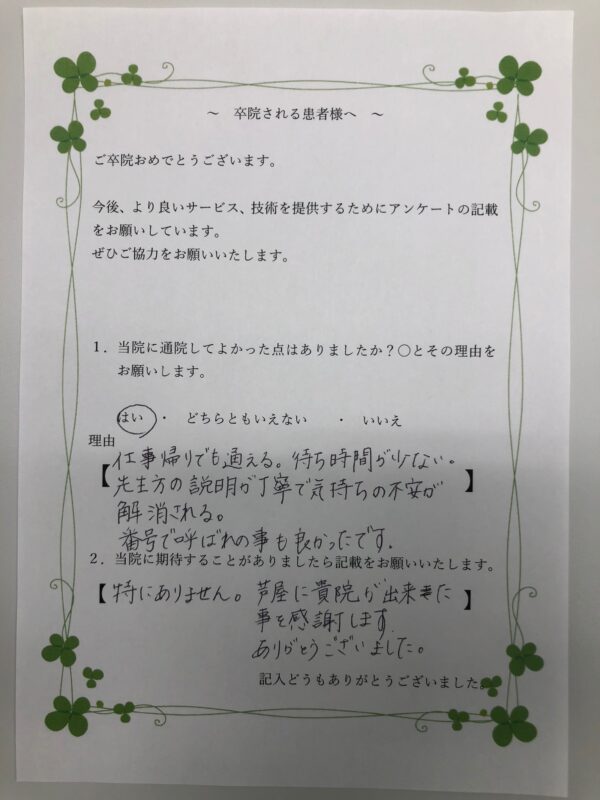 ～ 卒院される患者様へ ～
ご卒院おめでとうございます。
今後、より良いサービス、技術を提供するためにアンケートの記載
をお願いしています。
ぜひご協力をお願いいたします。
１．当院に通院してよかった点はありましたか？〇とその理由を
お願いします。
はい ・ どちらともいえない ・ いいえ
理由
【仕事帰りでも通える。待ち時間が少ない。
先生方の説明が丁寧で気持ちの不安が】
解消される。
番号で呼ばれの事も良かったです.
２．当院に期待することがありましたら記載をお願いいたします。
【特にありません。芦屋に貴院が出来た】
事を感謝します
ありがとうございました。
記入どうもありがとうございました。